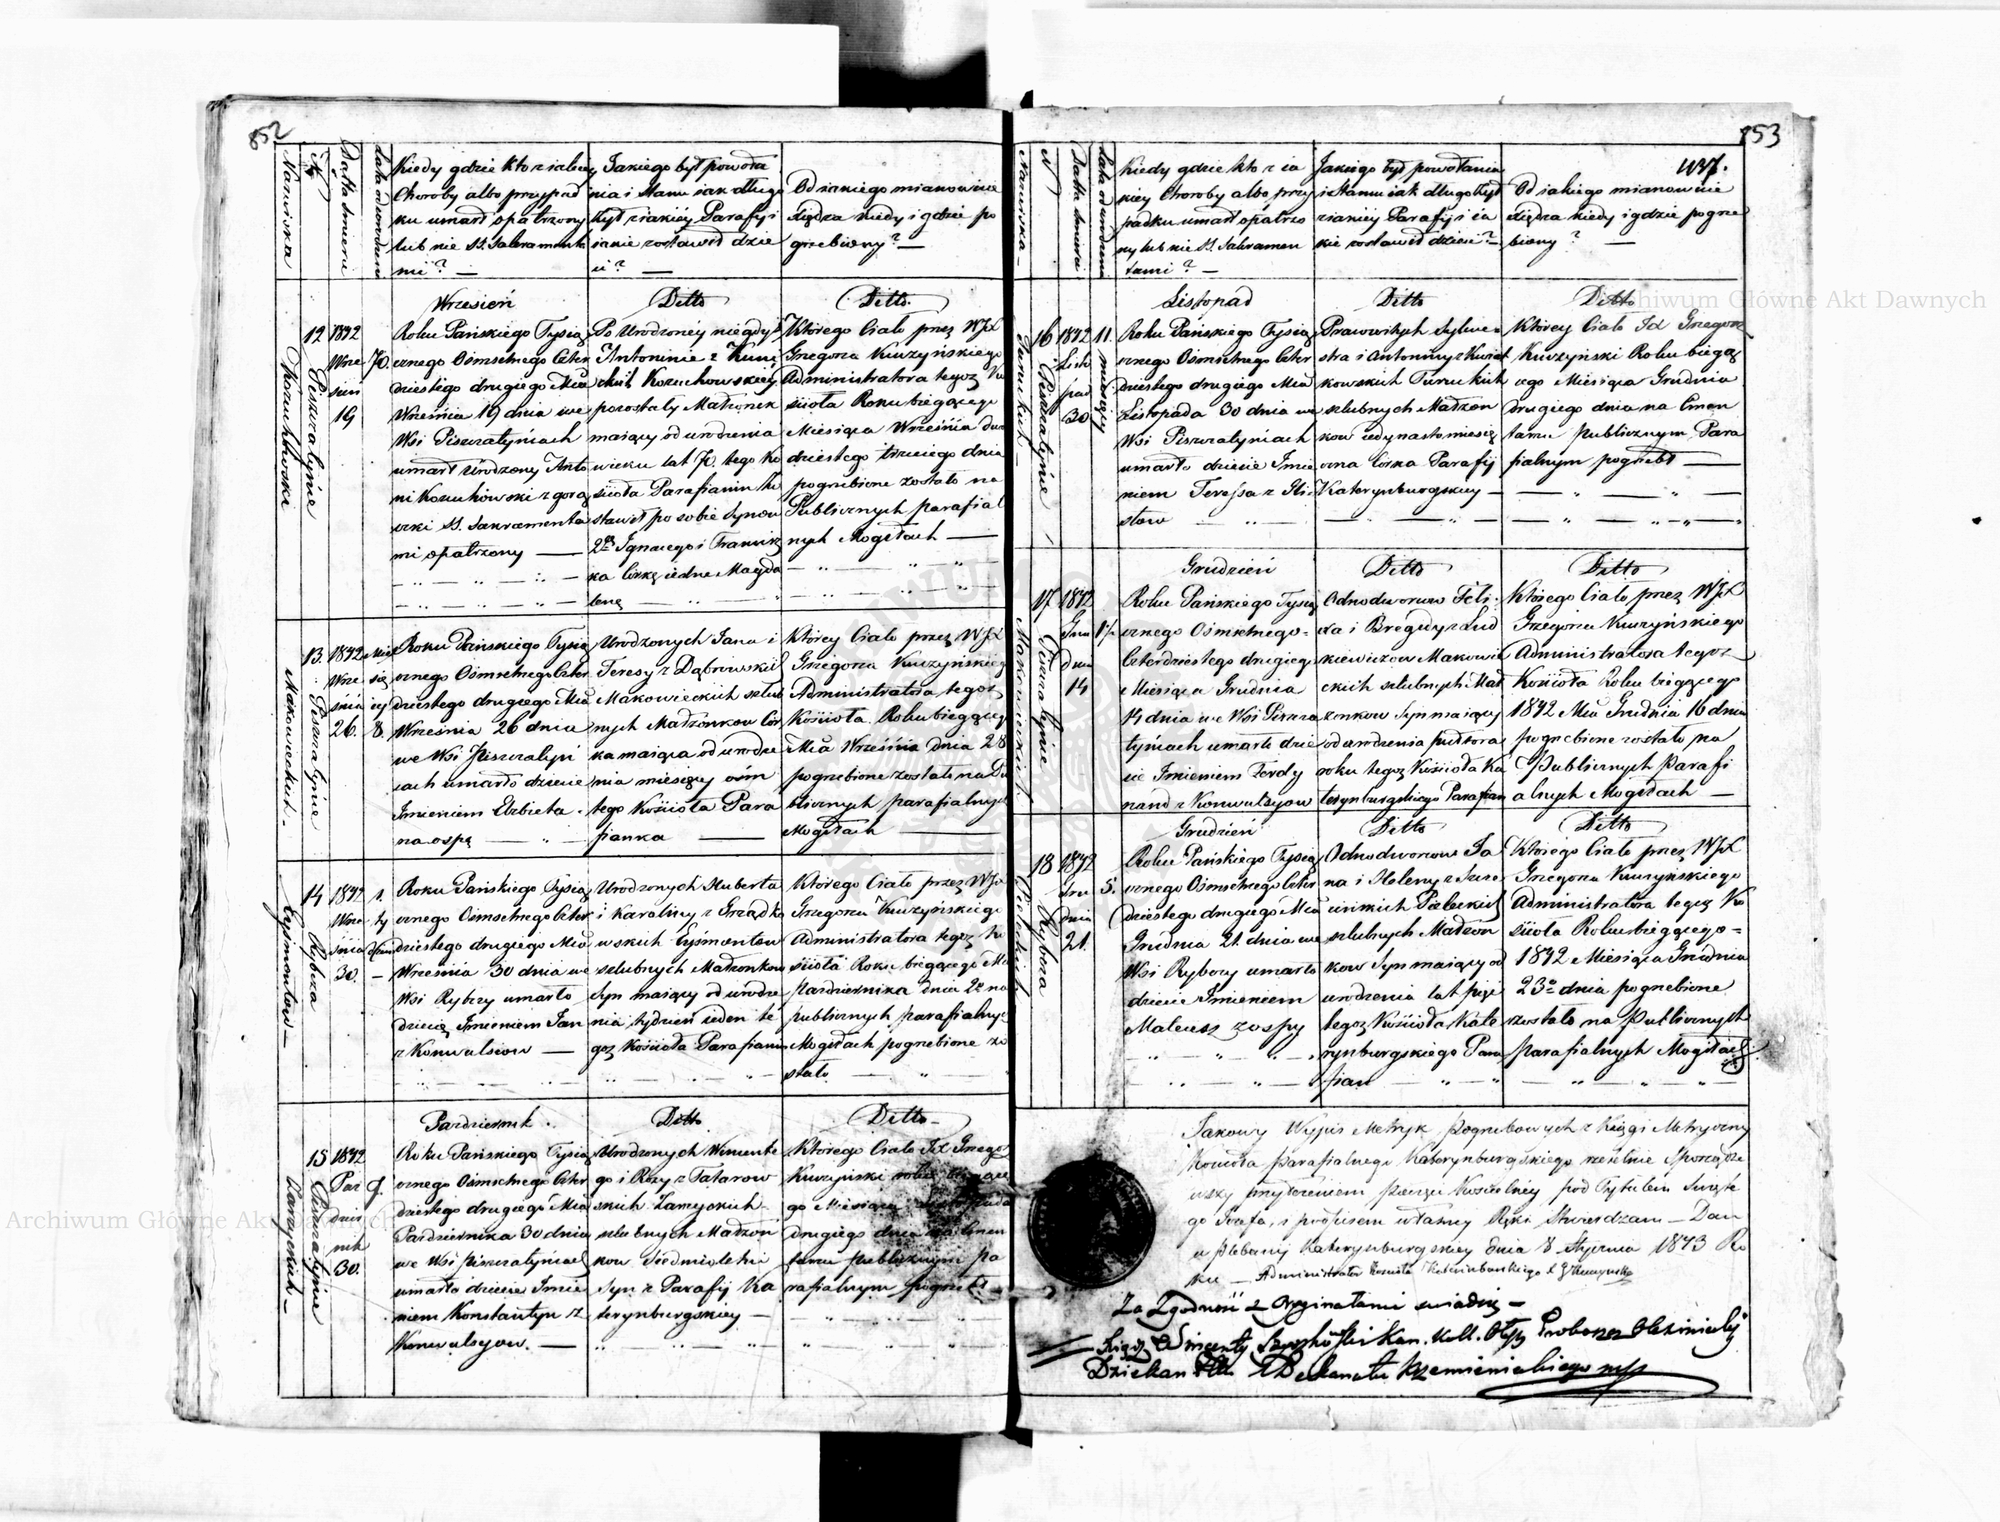 852
Nazwiska
N
Datta śmierci
Lata od urodzenia
Kiedy gdzie kto z iakiey
Choroby albo przypad
ku umarł opatrzony
lub nie SS. Sakramenta
mi? —
Jakiego był powoła
nia i stanu iak długo
żył z iakiéy Parafyi
iakie zostawił dzie
ci? —
Od iakiego mianowicie
Xiędza kiedy i gdzie po
grzebiony? —
Kozuchowski
12
Piszczatyńie
1842
Wrze
sień
19
70.
Wrzesień
Roku Pańskiego Tysią
cznego Ośmsetnego Czter
dziestego drugiego Mca
Września 19 dnia we
Wsi Piszczatyńcach
umarł Urodzony Anto
ni Kozuchowski z gorą
czki SS. Sakramenta
mi opatrzony —
Ditto
Po Urodzoney niegdyś
Antoninie z
Kozuchowskiéy
pozostały Małżonek
maiący od urodzenia
wieku lat 70. tego Ko
ścioła Parafianin Zo
stawił po sobie Synow
2ch Ignacego i Francisz
ka Córkę iedne Magda
lenę
Ditto.
Którego Ciało przez WJX
Grzegorza Kuczyńskiego
Administratora tegoż Ko
ścioła Roku bieżącego
Miesiąca Września dwu
dziestego trzeciego dnia
pogrzebione zostało na
Publicznych parafial
nych Mogiłach —
Makowieckich.
13.
Piszczatyńie
1842
Wrze
śnia
26.
Mie
się
cy
8.
Roku Pańskiego Tysią
cznego Ośmsetnego Czter
dziestego drugiego Mca
Września 26 dnia
we Wsi Piszczatyń
cach umarło dziecie
Imieniem Elżbieta
na ospę —
Urodzonych Jana i
Teresy z Dąbrowskich
Makowieckich szlub
nych Małżonkow Cór
ka maiąca od urodze
nia miesięcy ośm
tego Kościoła Para
fianka —
Którey Ciało przez WJX
Grzegorza Kuczyńskiego
Administratora tegoż
Kościoła Roku bieżącego
Mca Września dnia 28
pogrzebione zostało na Pu
blicznych parafialnych
Mogiłach —
Eyśmontow —
14
Rybcza
1842
Wrze
śnia
30.
1.
ty
dzień
—
Roku Pańskiego Tysią
cznego Ośmsetnego Czter
dziestego drugiego Mca
Września 30 dnia we
Wsi Rybczy umarło
dziecię Imieniem Jan
z Konwulsiow —
Urodzonych Huberta
i Karoliny z Grządko
wskich Eyśmontow
szlubnych Małżonkow
Syn maiący od urodze
nia tydzień ieden te
goż Kościoła Parafianin
Którego Ciało przez WJX
Grzegorza Kuczyńskiego
Administratora tegoż Ko
ścioła Roku bieżącego Mca
Pazdziernika dnia 2o na
publicznych parafialnych
Mogiłach pogrzebione zo
stało
15
Piszczatyńie
1842
Paz
dzier
nik
30.
7.
Pazdziernik.
Roku Pańskiego Tysią
cznego Ośmsetnego Czter
dziestego drugiego Mca
Pazdziernika 30 dnia
we Wsi Piszczatyńcach
umarło dziecie Imie
niem Konstantyn z
Konwulsyow. —
Ditto
Urodzonych Wincente
go i Rozy z Tatarow
skich
szlubnych Małżon
kow Siedmioletni
Syn z Parafij Ka
terynburgskiey —
Ditto —
Którego Ciało JX Grzegorz
Kuczyński roku bieżące
go Miesiąca
drugiego dnia na Cmen
tarzu publicznym pa
rafialnym pogrzebł —
853
437.
Nazwiska
N
Datta śmierci
Lata od urodzenia
Kiedy gdzie kto z ia
kiey Choroby albo przy
padku umarł opatrzo
ny lub nie SS. Sakramen
tami? —
Jakiego był powołania
i stanu iak długo żył
z iakiey Parafyi ia
kie zostawił dzieci? —
Od iakiego mianowicie
Xiędza kiedy i gdzie pogrze
biony? —
16
Piszczatyńie
1842
Listo
pad
30
11.
miesięcy
Listopad
Roku Pańskiego Tysią
cznego Ośmsetnego Czter
dziestego drugiego Mca
Listopada 30 dnia we
Wsi Piszczatyńiach
umarło dziecie Imie
niem Teressa z Gli
stow
Ditto
Prawowitych Sylwe
stra i Antoniny z Kwiat
kowskich
szlubnych Małżon
kow iedynasto miesię
czna Córka Parafij
Katerynburgskiey —
Ditto
Którey Ciało JX Grzegorz
Kuczyński Roku bieżą
cego Miesiąca Grudnia
drugiego dnia na Cmen
tarzu publicznym Para
fialnym pogrzebł —
Makowieckich
17
Piszczatyńie
1842
Gru
dnia
14
1½
Grudzień
Roku Pańskiego Tysią
cznego Ośmsetnego =
Czterdziestego drugiego
Miesiąca Grudnia
14 dnia we Wsi Piszcza
tyńiach umarło dzie
cie Imieniem Ferdy
nand z Konwulsyow
Ditto
Odnodworcow Feli
xa i Brigidy z Lud
kiewiczow Makowie
ckich szlubnych Mał
żonkow Syn maiący
od urodzenia pułtora
roku tegoż Kościoła Ka
terynburgskiego Parafian
Ditto
Którego Ciało przez WJX
Grzegorza Kuczyńskiego
Administratora tegoż
Kościoła Roku bieżącego
1842 Mca Grudnia 16 dnia
pogrzebione zostało na
Publicznych Parafi
alnych Mogiłach —
18
Rybcza
1842
Gru
dnia
21.
5.
Grudzień
Roku Pańskiego Tysią
cznego Ośmsetnego Czter
dziestego drugiego Mca
Grudnia 21. dnia we
Wsi Rybczy umarło
dziecie Imieniem
Mateusz z ospy
Ditto
Odnodworcow Ja
na i Heleny z
szlubnych Małżon
kow Syn maiący od
urodzenia lat pięć
tegoż Kościoła Kate
rynburgskiego Para
fian
Ditto
Którego Ciało przez WJX
Grzegorza Kuczyńskiego
Administratora tegoż Ko
ścioła Roku bieżącego =
1842 Miesiąca Grudnia
23o dnia pogrzebione
zostało na Publicznych
parafialnych Mogiłach
Takowy Wypis Metryk Pogrzebowych z Xięgi Metryczney
Kościoła Parafialnego Katerynburgskiego rzetelnie Sporządzi
wszy przyłożeniem pieczęci Kościelney pod Tytułem Święte
go Józefa, i podpisem własney Ręki Stwierdzam — Dan
w Plebanij Katerynburgskiey dnia 8 Stycznia 1843 Ro
ku — Administrator Kościoła Katerinburskiego X G Kuczyński
Za Zgodność z Oryginałami swiadczę —
Xiądz Wincenty Kan. Koll. Ołyc. Proboszcz
Dziekan Dekanatu Krzemienieckiego mp
Archiwum Główne Akt Dawnych
Archiwum Główne Akt Dawnych